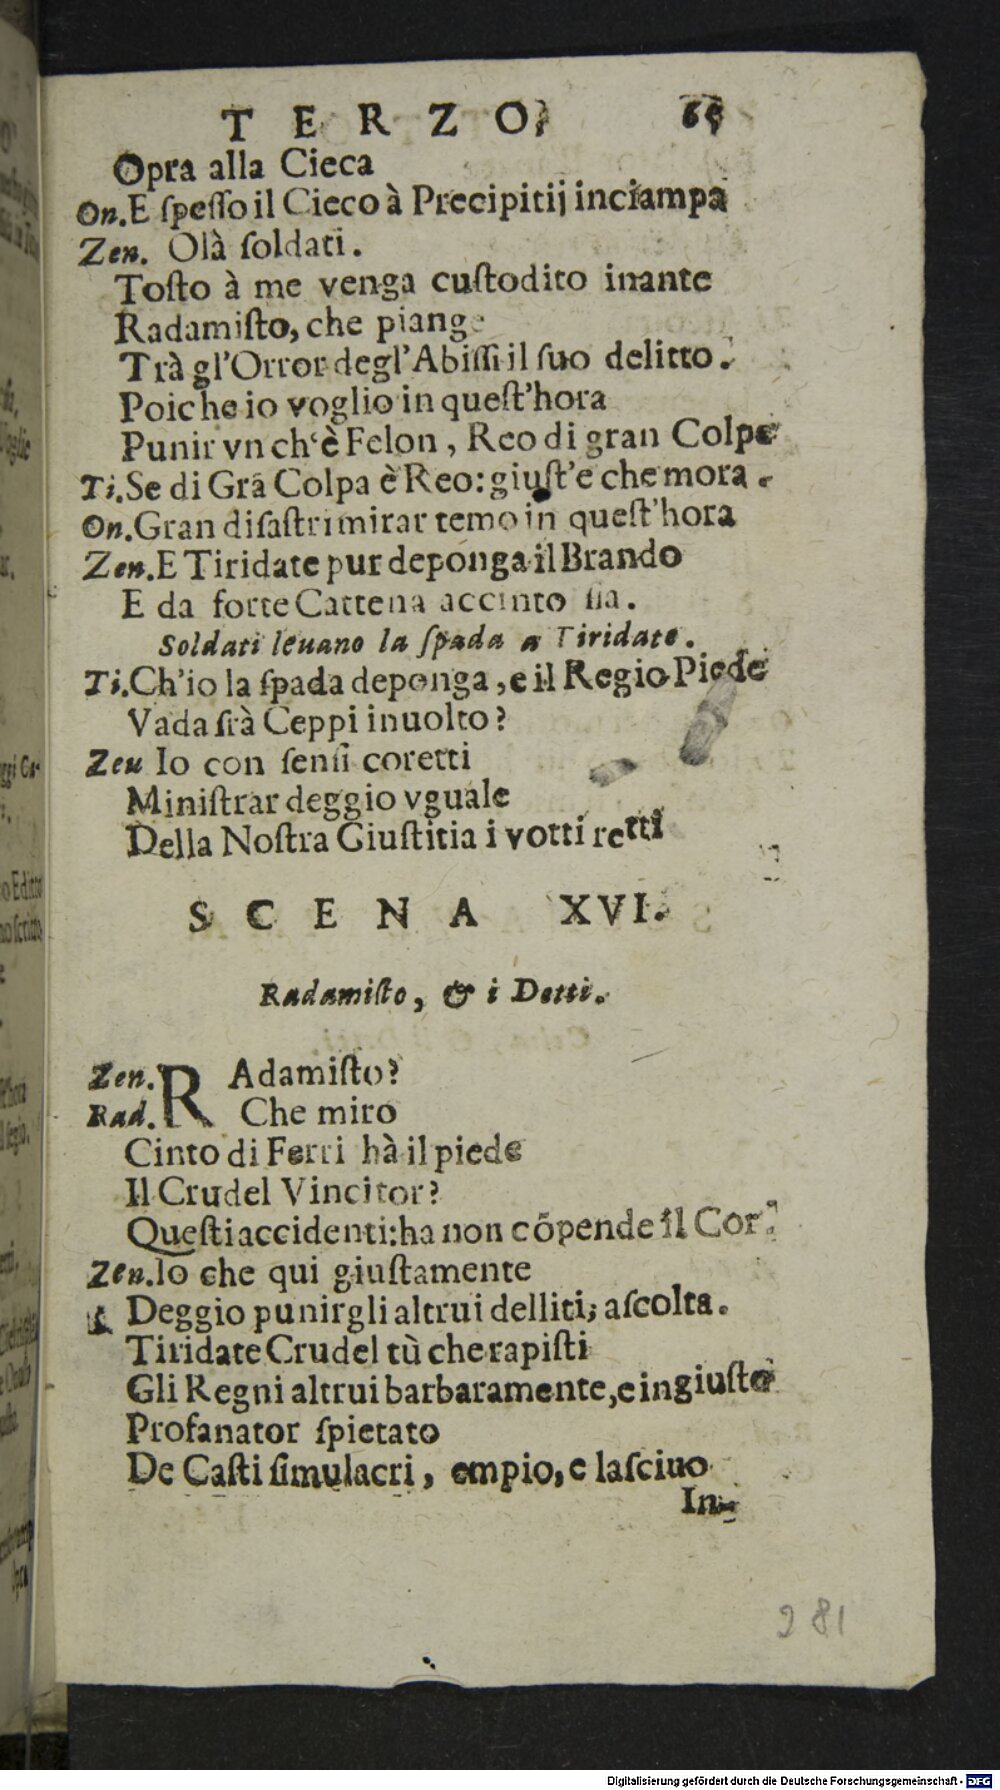 TERZO. 65
Opra alla Cieca
On. E ſpeſſo il Cieco à Precipitij inciampa
Zen. Olà ſoldati.
Toſto à me venga cuſtodito inante
Radamiſto, che piange
Trà gl'Orror degl'Abiſſi il ſuo delitto.
Poiche io voglio in queſt'hora
Punir vn ch'è Felon, Reo di gran Colpe
Ti. Se di Grã Colpa è Reo: giuſt'e che mora.
On. Gran diſaſtri mirar temo in queſt'hora
Zen. E Tiridate pur deponga il Brando
E da forte Cattena accinto ſia.
Soldati leuano la ſpada a Tiridate.
Ti. Ch'io la ſpada deponga, e il Regio Piede
Vada frà Ceppi inuolto?
Zeu Io con ſenſi coretti
Miniſtrar deggio vguale
Della Noſtra Giuſtitia i votti retti
SCENA XVI.
Radamiſto, & i Detti.
Zen. RAdamiſto?
Rad. Che miro
Cinto di Ferri hà il piede
Il Crudel Vincitor?
Queſti accidenti: ha non cõpende il Cor.
Zen. Io che qui giuſtamente
Deggio punir gli altrui delliti; aſcolta.
Tiridate Crudel tù che rapiſti
Gli Regni altrui barbaramente, e ingiuſto
Profanator ſpietato
De Caſti ſimulacri, empio, e laſciuo
In-
281
Digitalisierung gefördert durch die Deutsche Forschungsgemeinschaft - DFG